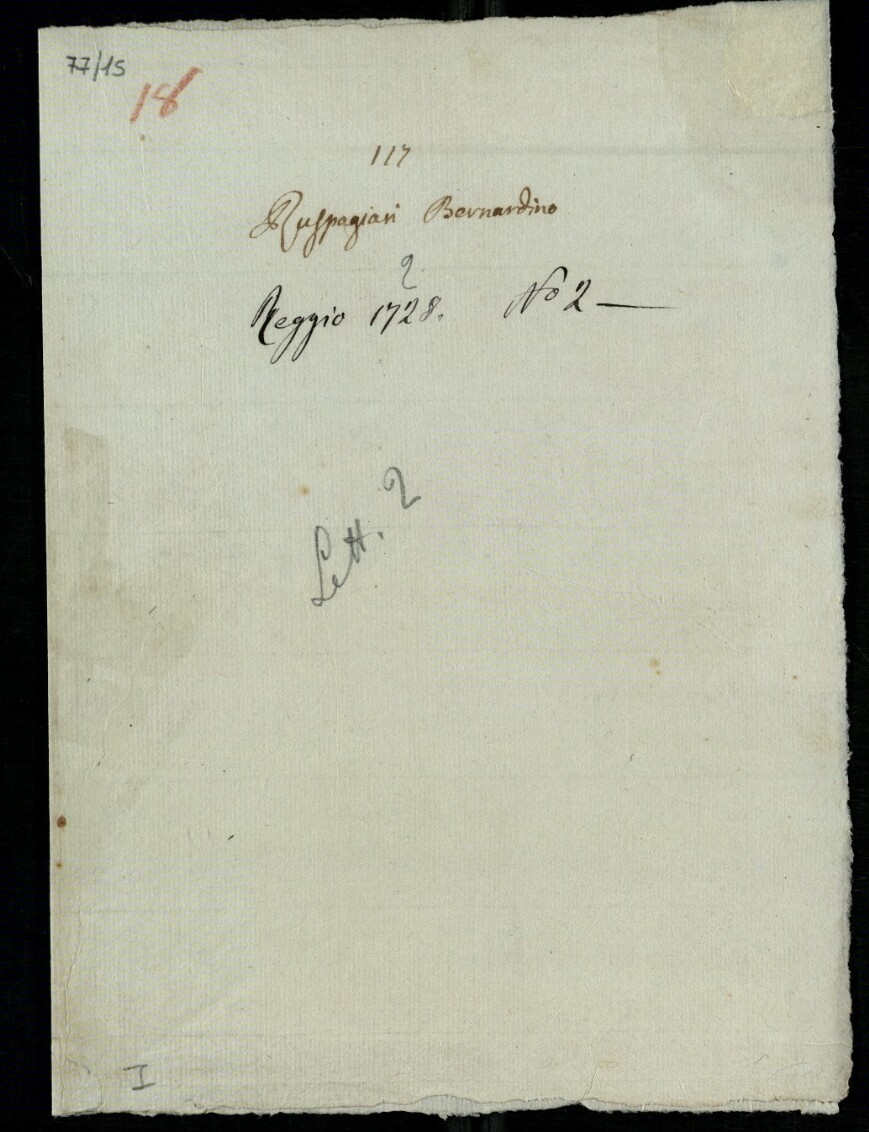 77/15
18
117
Ruspagiari Bernardino
2
Reggio 1728. No 2 —
Lett. 2
I